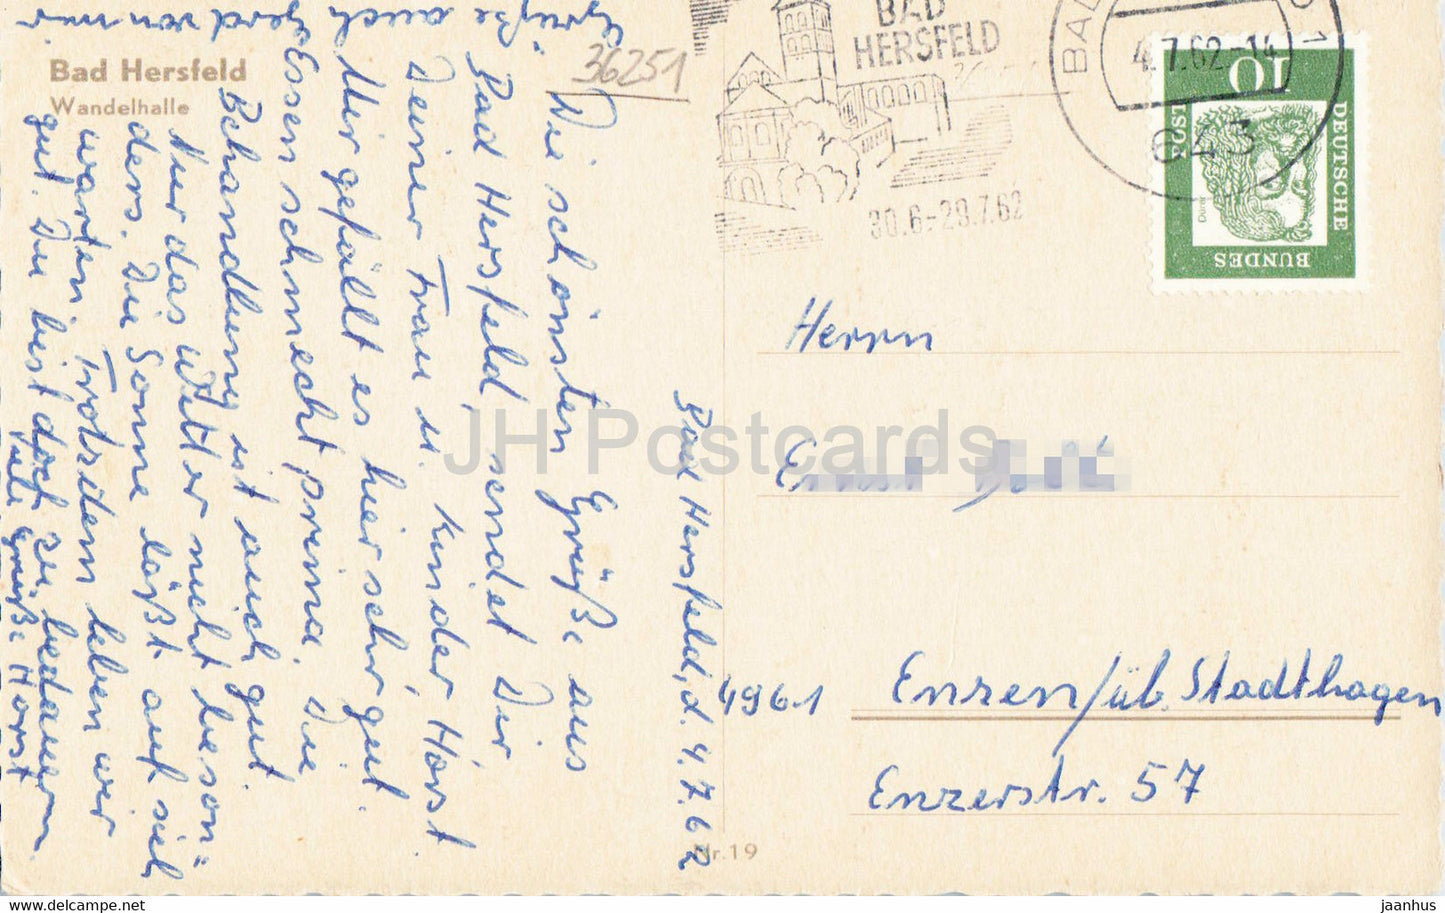 Bad Hersfeld
Wandelhalle
36251
BAD
HERSFELD
30.6.-29.7.62
BAD
4.7.62-14
643
10
DEUTSCHE
BUNDES
POST
Bad Hersfeld, d. 4.7.62
Die schönsten Grüße aus
Bad Hersfeld, sendet Dir
Deiner Frau u. Kinder, Horst
Mir gefällt es hier sehr gut.
Essen schmeckt prima. Die
Behandlung ist auch gut
Nur das Wetter nicht beson=
ders. Die Sonne läßt auf sich
warten. Trotzdem leben wir
gut. Du bist doch zu bedauern.
Viele Grüße Horst
Grüße auch
Gerd von mir
Herrn
Ernst
4961 Enzen/üb. Stadthagen
Enzerstr. 57
Nr. 19
JH Postcards
jaanhus ©delcampe.net